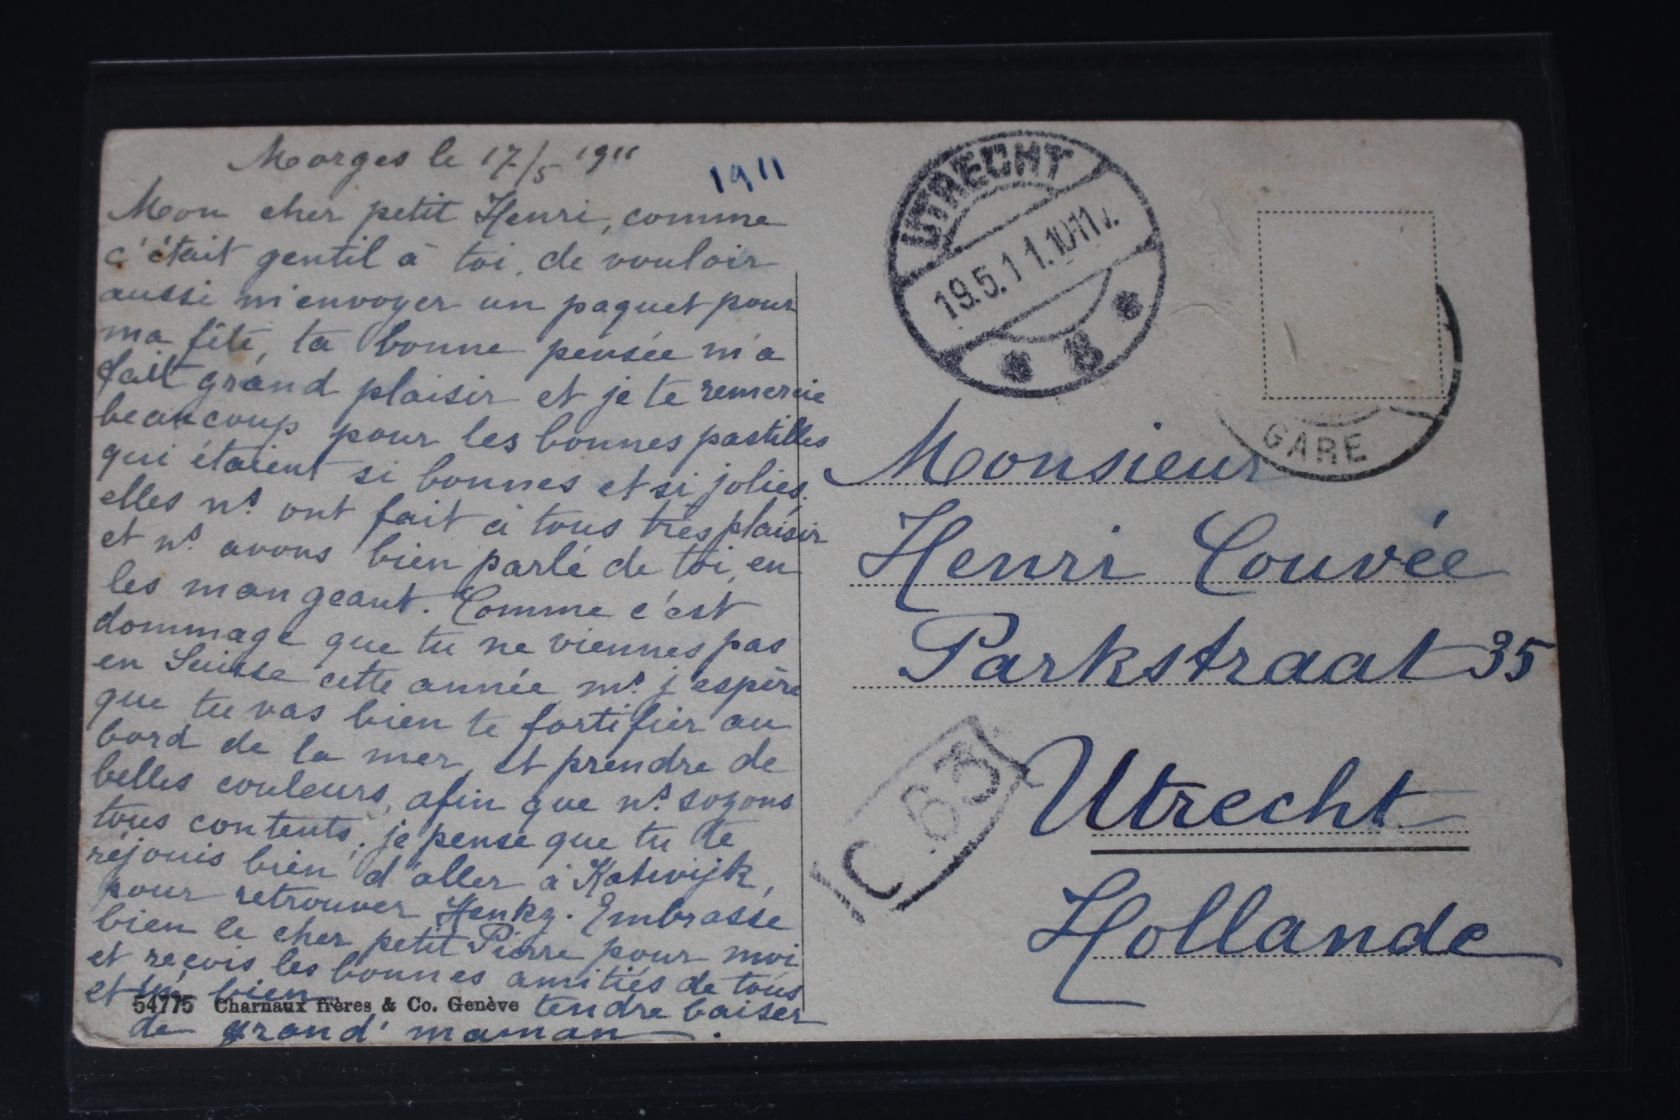 Morges le 17/5 1911
1911
Mon cher petit Henri, comme
c'était gentil à toi, de vouloir
aussi m'envoyer un paquet pour
ma fête, ta bonne pensée m'a
fait grand plaisir et je te remercie
beaucoup pour les bonnes pastilles
qui étaient si bonnes et si jolies,
elles ns. ont fait à tous très plaisir
et ns. avons bien parlé de toi, en
les mangeant. Comme c'est
dommage que tu ne viennes pas
en Suisse cette année ms. j'espère
que tu vas bien te fortifier au
bord de la mer, et prendre de
belles couleurs, afin que ns. soyons
tous contents, je pense que tu te
réjouis bien d'aller à Katwijk,
pour retrouver Henky. Embrasse
bien le cher petit Pierre pour moi
et reçois les bonnes amitiés de tous
et un bien tendre baiser
de grand' maman.
54775 Charnaux frères & Co. Genève
UTRECHT
19.5.11.10-11V.
8
GARE
Monsieur
Henri Couvée
Parkstraat 35
Utrecht
Hollande
C 63